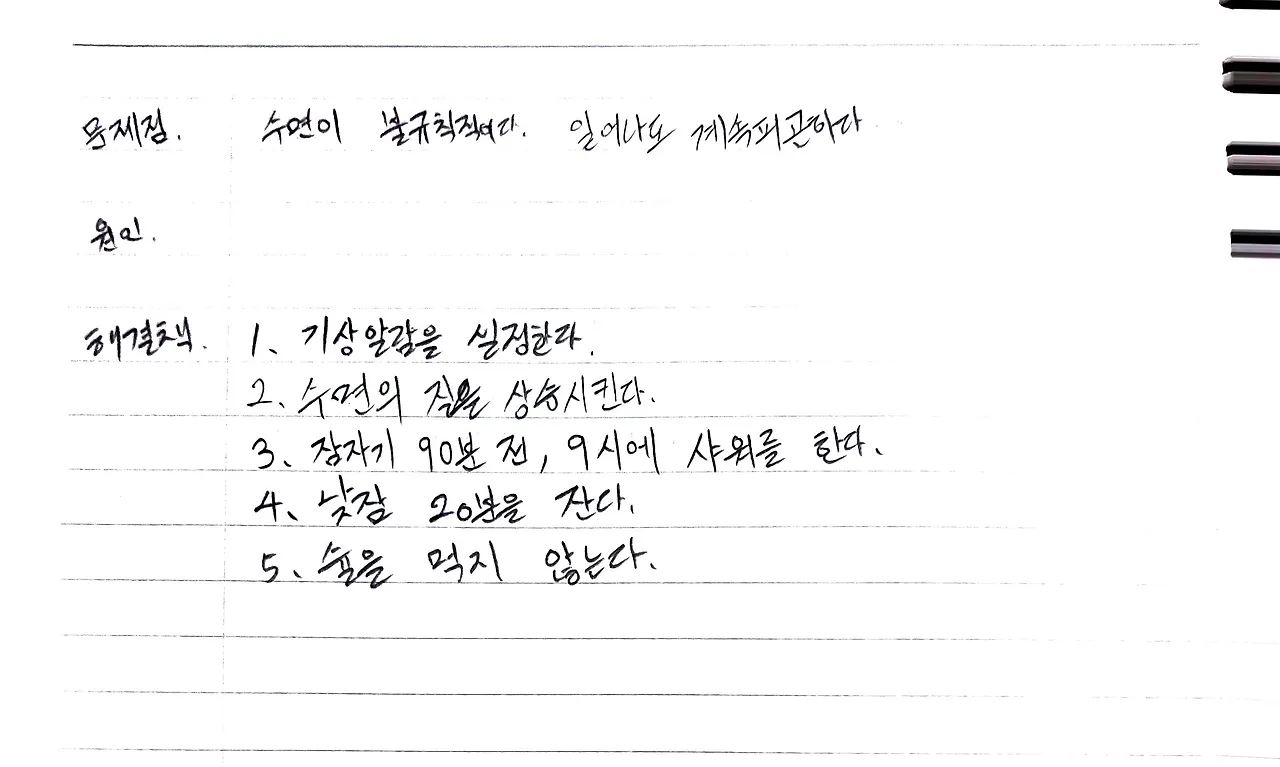 문제점. 수면이 불규칙적이다. 일어나도 계속피곤하다
원인.
해결책. 1. 기상알람을 설정한다.
2. 수면의 질을 상승시킨다.
3. 잠자기 90분 전, 9시에 샤워를 한다.
4. 낮잠 20분을 잔다.
5. 술을 먹지 않는다.